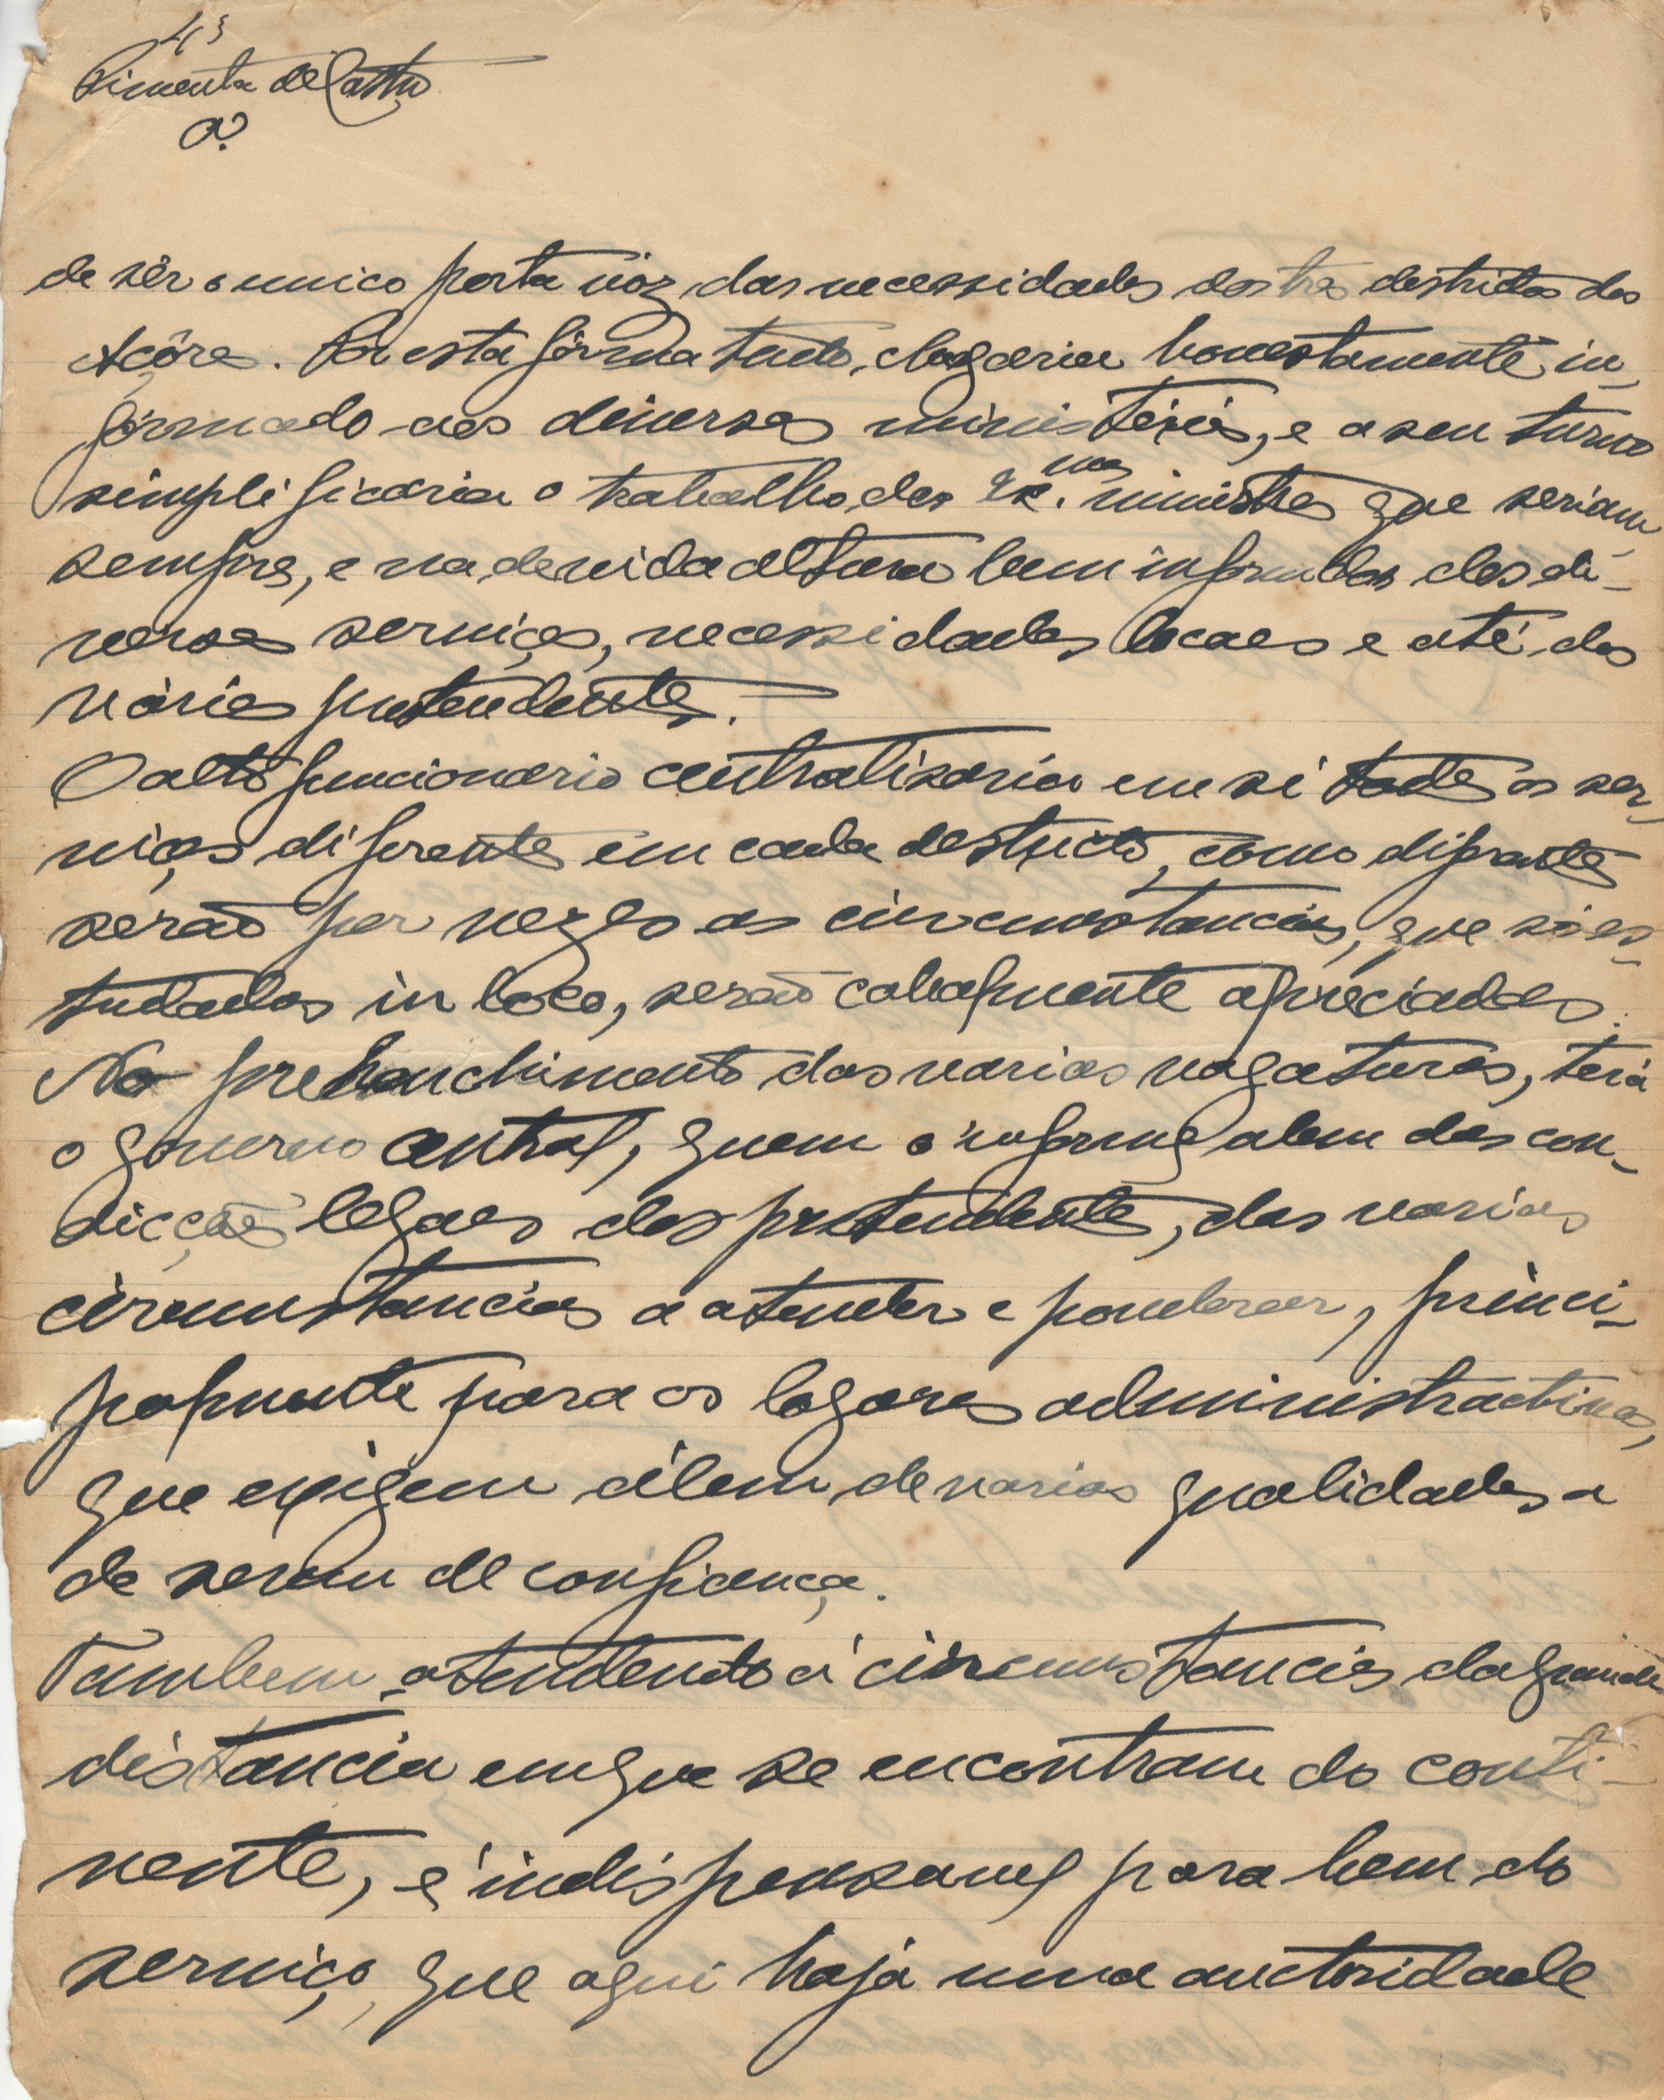 Pimenta de Castro
de sêr o unico porta vóz, das necessidades dos tres destrictos dos
Açôres. Por esta fórma tudo, chegaria honestamente in-
formado aos diversos ministérios, e a seu turno
simplificaria o trabalho, dos Ex.mos ministros que seriam
sempre, e na devida altura bem informados dos di-
versos serviços, necessidades locaes e até dos
vários pretendentes.
O alto funcionario centralisaria em si todos os ser-
viços differentes em cada destricto, como differentes
serão por vezes as circumstancias, que só es-
tudadas in loco, serão cabalmente apreciadas.
No prehenchimento das varias vagaturas, terá
o governo central, quem o informe alem das con-
dicções legaes dos pretendentes, das varias
circumstancias a attender e ponderar, princi-
palmente para os logares administractivos,
que exigem álem de varias qualidades a
de serem de confiança.
Tambem attendendo á circumstancia da grande
distancia em que se encontram do conti-
nente, é indispensavel para bem do
serviço, que aqui haja uma auctoridade